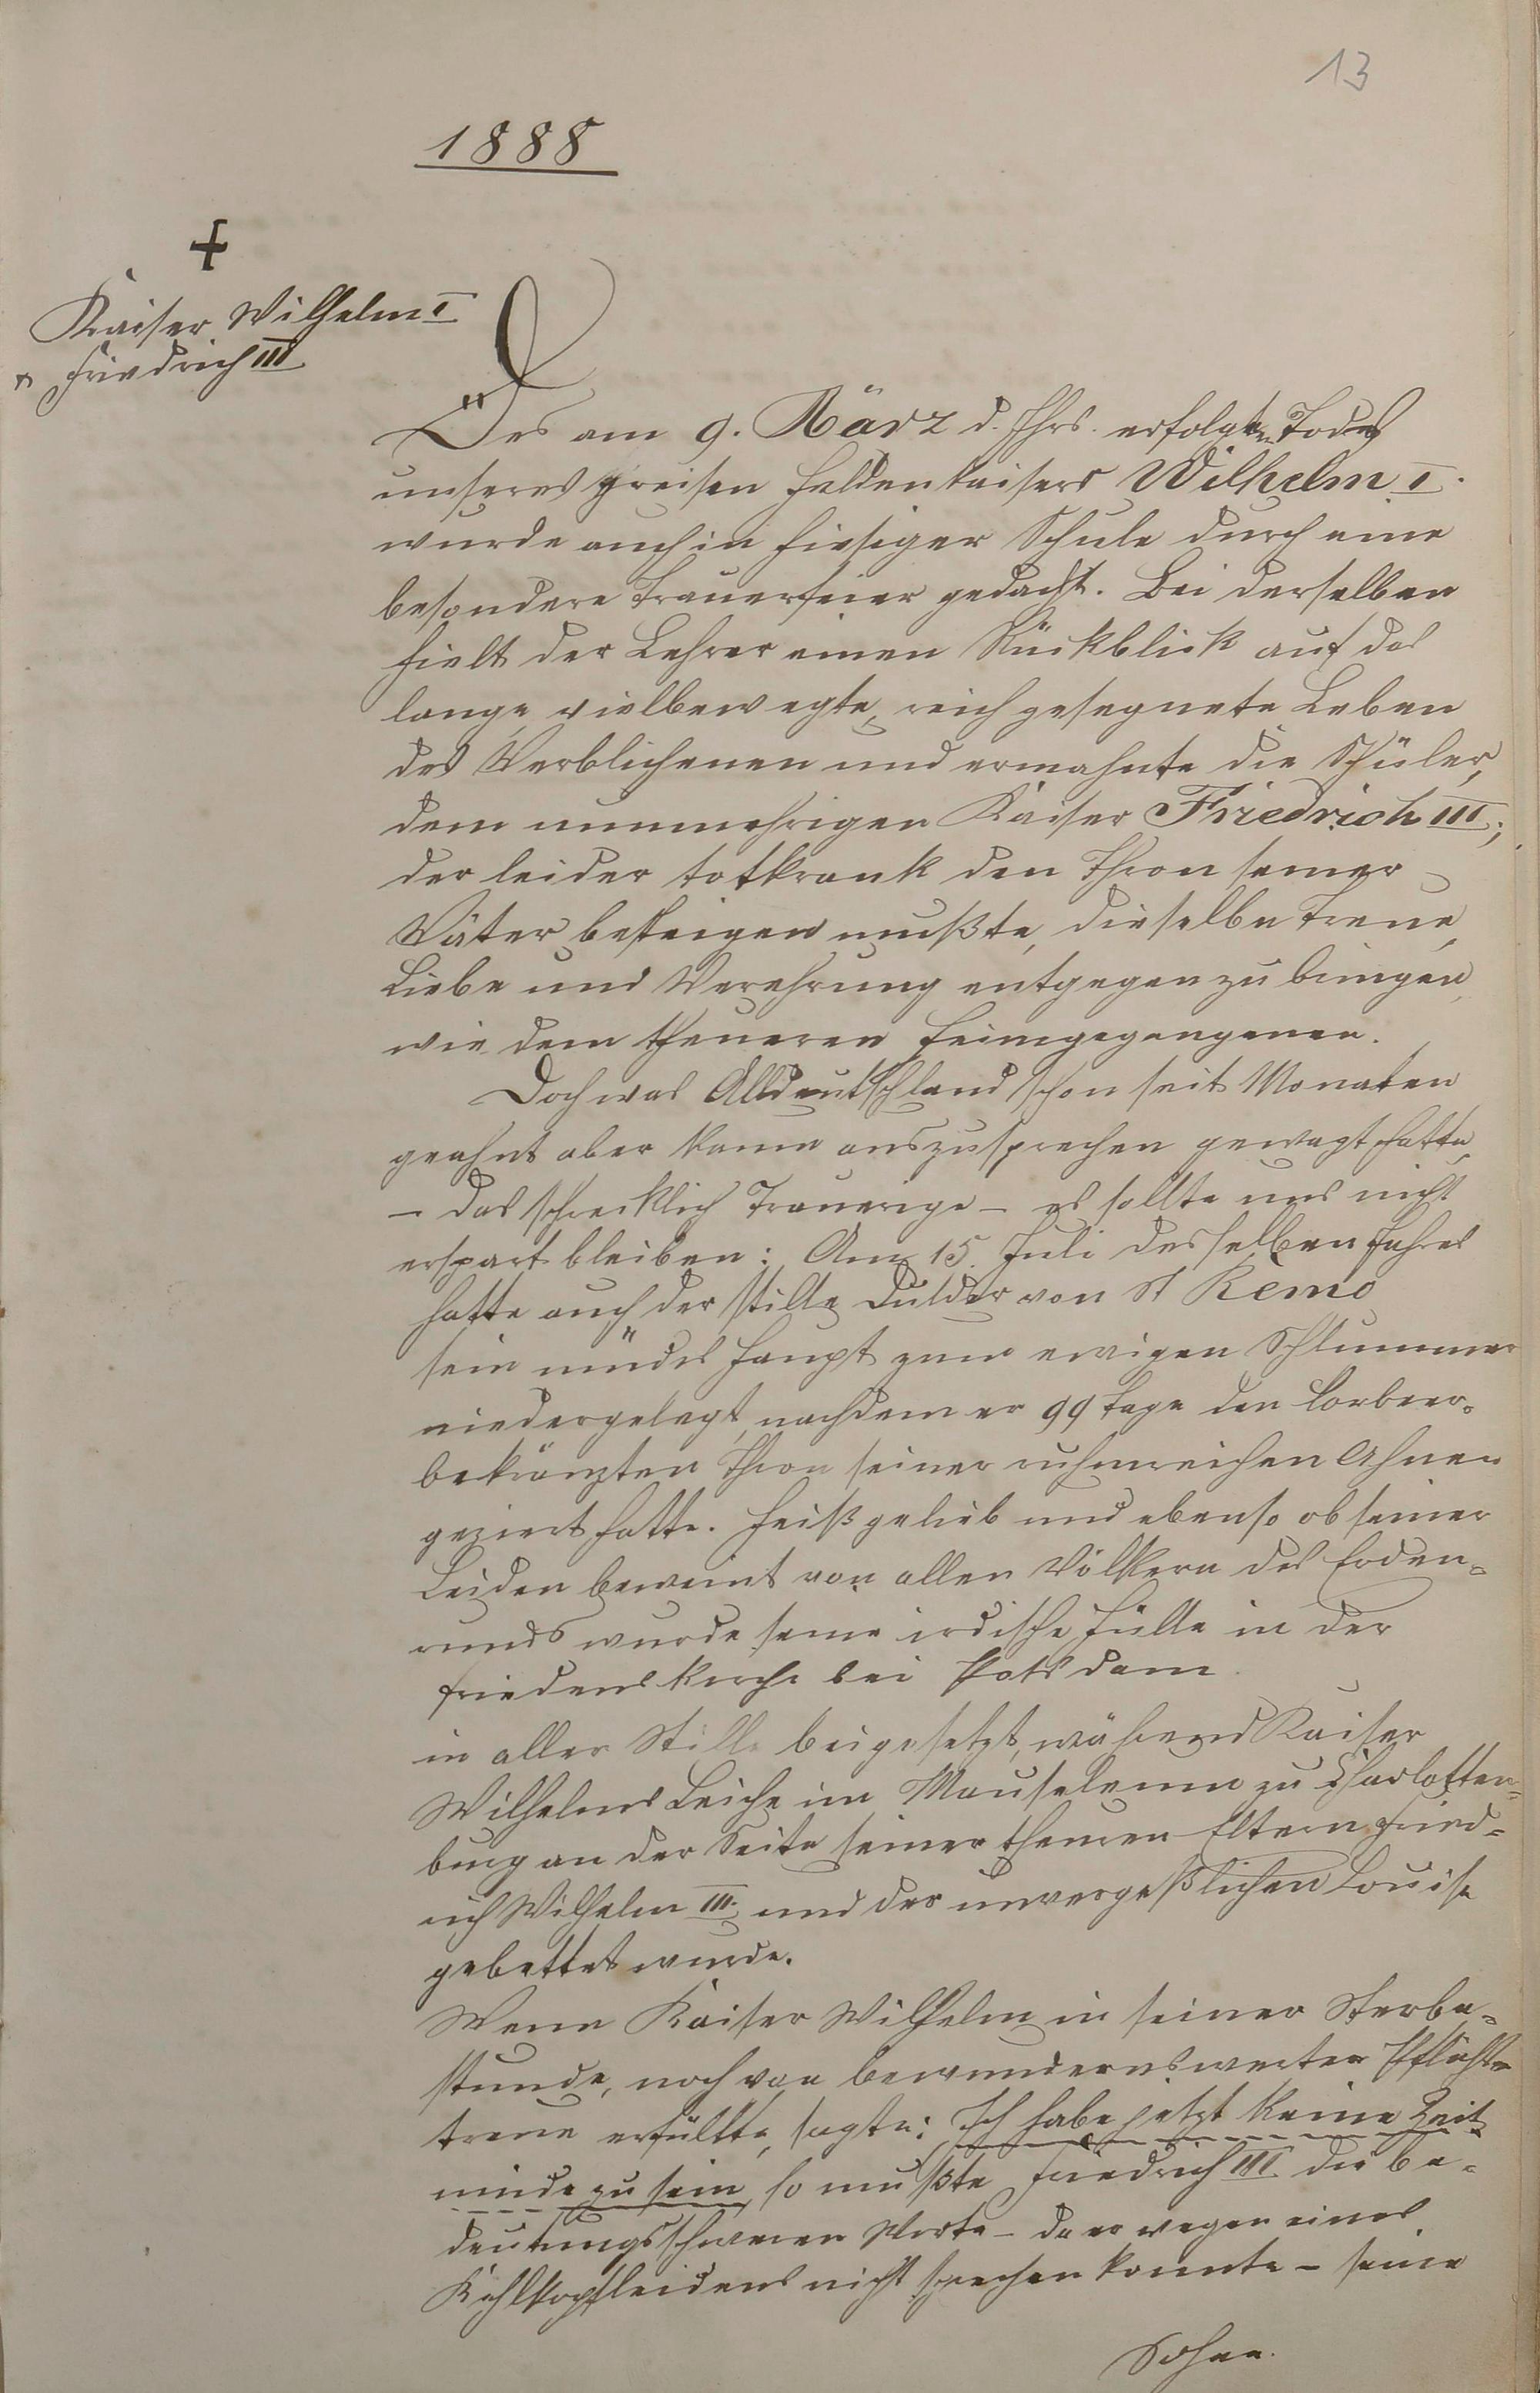 13
1888
+
Kaiser Wilhelm I
u. Friedrich III
Des am 9. März d. Jhrs. erfolgten Todes
unseres greisen Heldenkaisers Wilhelm I.
wurde auch in hiesiger Schule durch eine
besondere Trauerfeier gedacht. Bei derselben
hielt der Lehrer einen Rückblick auf das
lange, vielbewegte, reich gesegnete Leben
des Verblichenen und ermahnte die Schüler,
dem nunmehrigen Kaiser Friedrich III.,
der leider totkrank den Thron seiner
Väter besteigen mußte, dieselbe Treue,
Liebe und Verehrung entgegen zu bringen,
wie dem theueren Heimgegangenen.
Doch was Alldeutschland schon seit Monaten
geahnt aber kaum auszusprechen gewagt hatte,
– das schrecklich Traurige – es sollte uns nicht
erspart bleiben: Am 15. Juli desselben Jahres
hatte auch der stille Dulder von St Remo
sein müdes Haupt zum ewigen Schlummer
niedergelegt, nachdem er 99 Tage den lorbeer-
bekränzten Thron seiner ruhmreichen Ahnen
geziert hatte. Heißgelieb und ebenso ob seiner
Leiden beweint von allen Völkern des Erden-
runds wurde seine irdische Hülle in der
Friedenskirche bei Potsdam
in aller Stille beigesetzt, während Kaiser
Wilhelms Leiche im Mausoleum zu Charlotten-
burg an der Seite seiner theuren Eltern Fried-
rich Wilhelm III. und der unvergeßlichen Louise
gebettet wurde.
Wenn Kaiser Wilhelm in seiner Sterbe-
stunde, noch von bewundernswerter Pflicht-
treue erfüllt, sagte: Ich habe jetzt keine Zeit
müde zu sein, so mußte Friedrich III die be-
deutungsschweren Worte – da er wegen eines
Kehlkopfleidens nicht sprechen konnte – seinem
Sohne